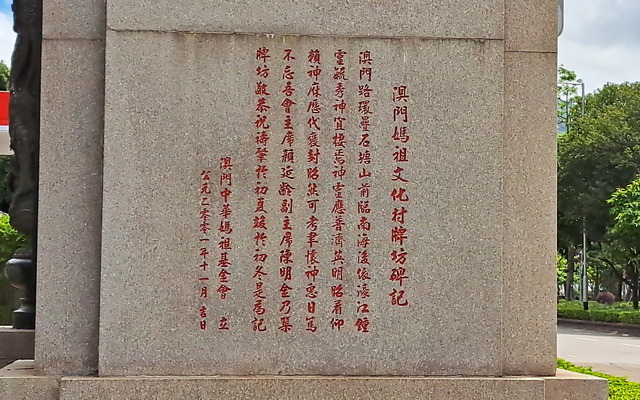 澳門媽祖文化村牌坊碑記
澳門路環疊石塘山前臨南海後依濠江鍾
靈毓秀神宜棲焉神靈應普濟英明昭着仰
賴神庥歷代褒封昭然可考聿懷神恩日篤
不忘吾會主席顏延齡副主席陳明金乃築
牌坊敬恭祝禱肇於初夏竣於初冬是為記
澳門中華媽祖基金會 立
公元二零零一年十一月 吉日